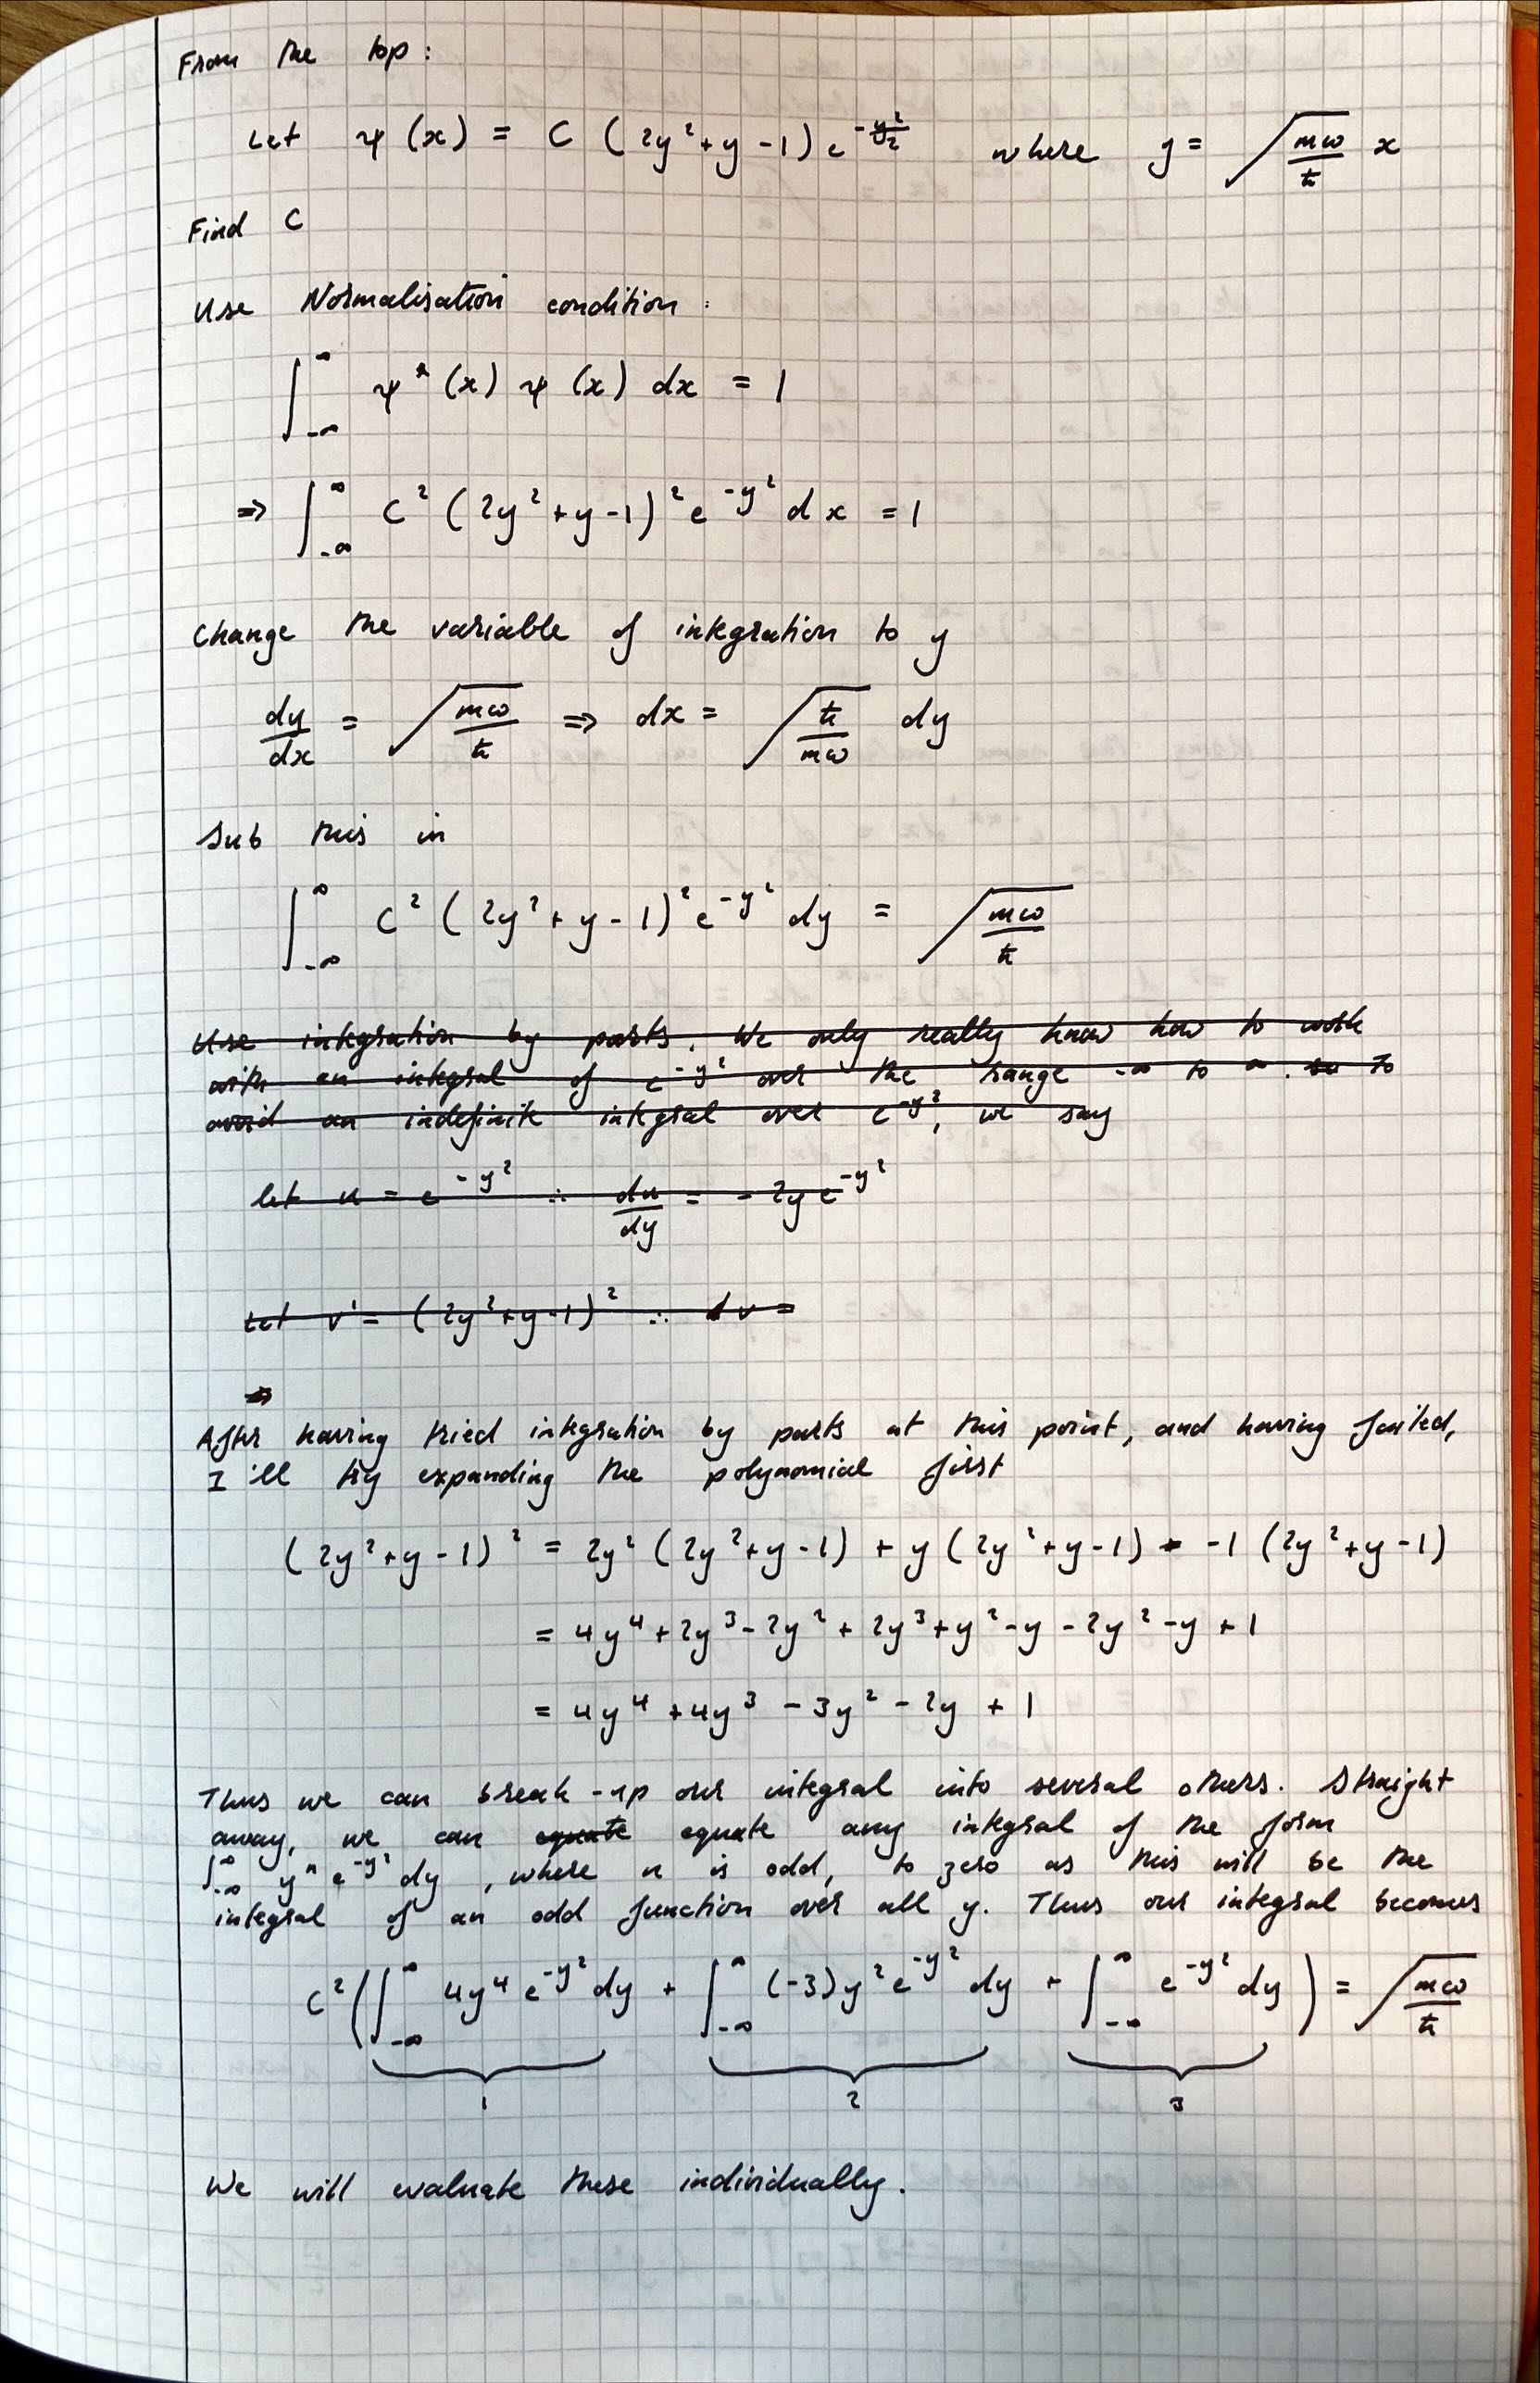 From the top:
Let ψ(x) = C (2y²+y-1) e^(-y²/2) where y = √(mω/ħ) x
Find C
Use Normalisation condition:
∫_{-∞}^{∞} ψ*(x) ψ(x) dx = 1
⇒ ∫_{-∞}^{∞} C² (2y²+y-1)² e^(-y²) dx = 1
Change the variable of integration to y
dy/dx = √(mω/ħ) ⇒ dx = √(ħ/mω) dy
Sub this in
∫_{-∞}^{∞} C² (2y²+y-1)² e^(-y²) dy = √(mω/ħ)
Use integration by parts. We only really know how to work
with an integral of e^(-y²) over the range -∞ to ∞. so To
avoid an indefinite integral over e^(-y²), we say
let u = e^(-y²) ∴ du/dy = -2y e^(-y²)
Let v' = (2y²+y-1)² ∴ dv =
⇒
After having tried integration by parts at this point, and having failed,
I'll try expanding the polynomial first
(2y²+y-1)² = 2y² (2y²+y-1) + y (2y²+y-1) + -1 (2y²+y-1)
= 4y⁴+2y³-2y²+2y³+y²-y-2y²-y+1
= 4y⁴+4y³-3y²-2y+1
Thus we can break-up our integral into several others. Straight
away, we can equate equate any integral of the form
∫_{-∞}^{∞} yⁿ e^(-y²) dy, where n is odd, to zero as this will be the
integral of an odd function over all y. Thus our integral becomes
C² (∫_{-∞}^{∞} 4y⁴ e^(-y²) dy + ∫_{-∞}^{∞} (-3)y² e^(-y²) dy + ∫_{-∞}^{∞} e^(-y²) dy) = √(mω/ħ)
1 2 3
We will evaluate these individually.